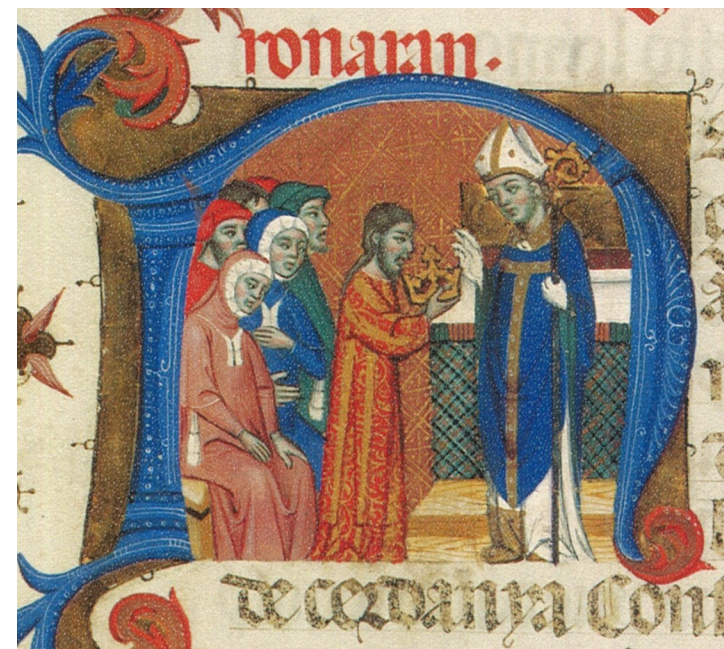 ronaran.
de cerdanya Com